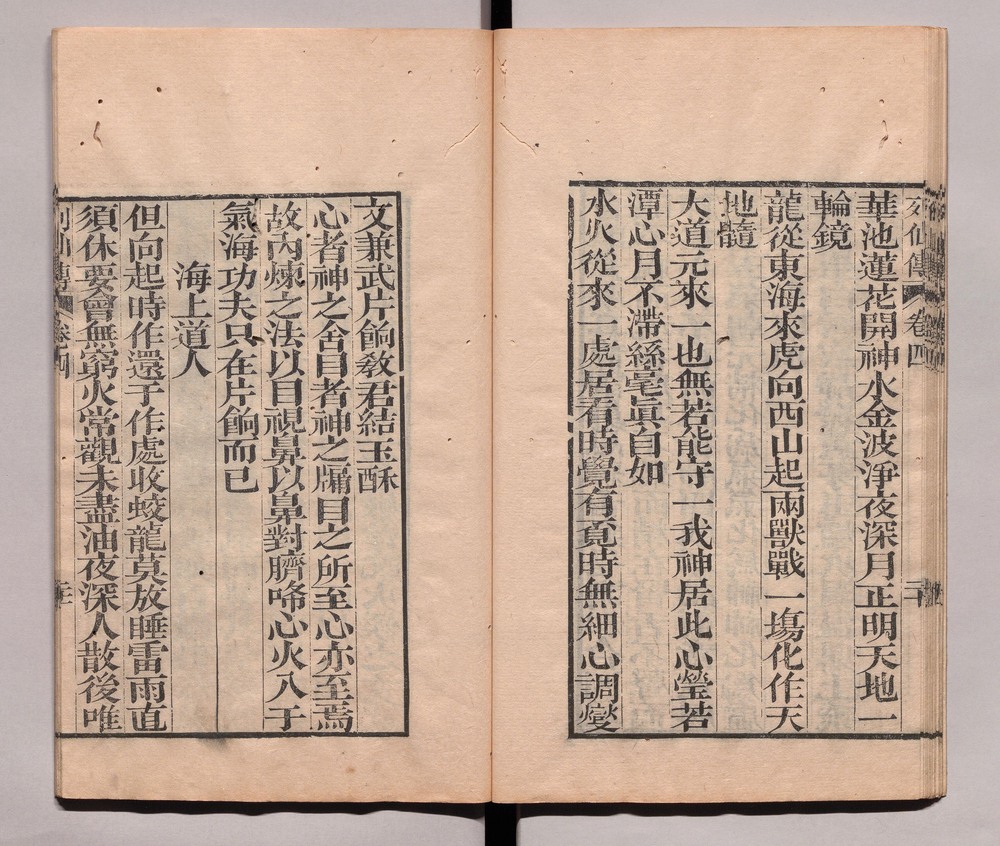 列仙傳 卷四
華池蓮花開神水金波淨夜深月正明天地一
輪鏡
龍從東海來虎向西山起兩獸戰一塲化作天
地髓
大道元來一也無若能守一我神居此心瑩若
潭心月不滯絲毫眞自如
水火從來一處居看時覺有覓時無細心調燮
文兼武片餉敎君結玉酥
心者神之舍目者神之牖目之所至心亦至焉
故內煉之法以目視鼻以鼻對臍降心火入于
氣海功夫只在片餉而已
海上道人
但向起時作還于作處收蛟龍莫放睡雷雨直
須休要會無窮火常觀未盡油夜深人散後唯
列仙傳 卷四